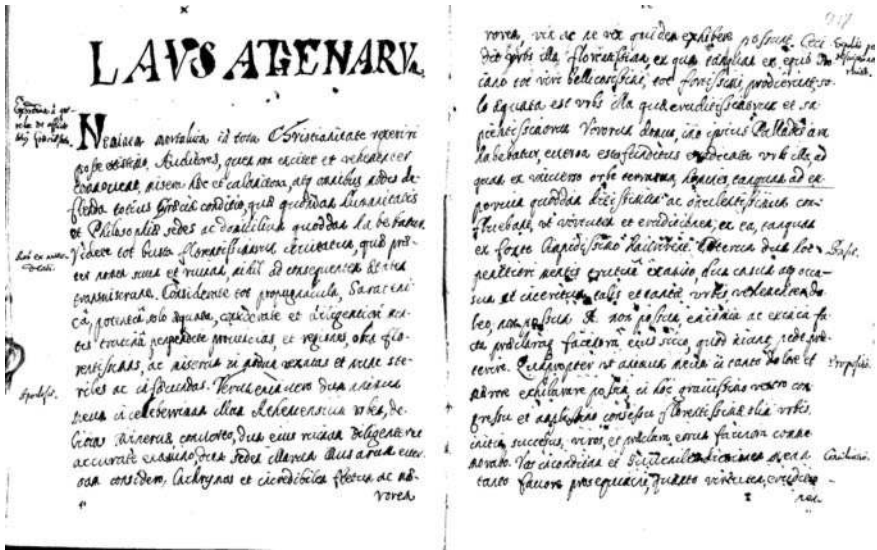 LAVS ATHENARVM
Neminem mortalium in tota Christianitate reperiri
posse existimo, Auditores, quem non excitet et vehementer
commoveat, misera hæc et calamitosa, atq omnibus modis de-
flenda totius Græciæ conditio, quæ quædam humanitatis
et Philosophiæ sedes ac domicilium quoddam habebatur.
Videte tot busta florentissimarum civitatum, quæ præ-
ter nomen suum et ruinam, nihil ad consequentem ætatem
transmiserunt. Considerate tot propugnacula, Saraceni-
câ potentiâ solo æquata, considerate et diligentiori men-
tis trutinâ perpendite provincias, et regiones, olim flo-
rentissimas, ac miserum in modum vexatas et nunc ste-
riles ac infæcundas. Verum enimvero dum animum
meum in celeberrimam illam Atheniensium urbem, de-
licias Minervæ converto, dum eius ruinam diligenter
accurate examino, dum sedem illarum Musarum ever-
sam considero, lachrymas et incredibilem fletum ac mæ-
rorem
Apodosis.
rorem, vix ac ne vix quidem exhibere possunt. Ceci-
dit urbs illa florentissima, ex qua tanquam ex equo
iano tot viri bellicosissimi, tot fortissimi prodierunt, so-
lo æquata est urbs illa quæ eruditissimorum et sa-
pientissimorum Virorum domus, imo ipsius Palladis
habebatur, eversa est funditus urbs illa, ad
quam ex universo orbe terrarum, homines, tanquam ad em-
porium quoddam ac opulentissimum con-
fluebant, ut virtutem et eruditionem, ex ea, tanquam
ex fonte limpidissimo haurirent. Cæterum dum hoc
mentis trutina examino, dum casum atq occa-
sum et interitum talis et tantæ urbis, vehementer do-
leo, non possum non possum, encomia ac
præclarorum facinorum eius sicco, quod aiunt, pede præ-
terire. Quapropter ut animum meum in tanto dolore et
mærore exhilarare possim in hoc gravissimo vestro con-
gressu et amplissimo consessu florentissimæ olim urbis,
initia, successus, viros, et præclara eorum facinora comme-
morabo. Vos
tanto favore prosequimini, quanto virtutem, erudi-
Basis.
Propositio.